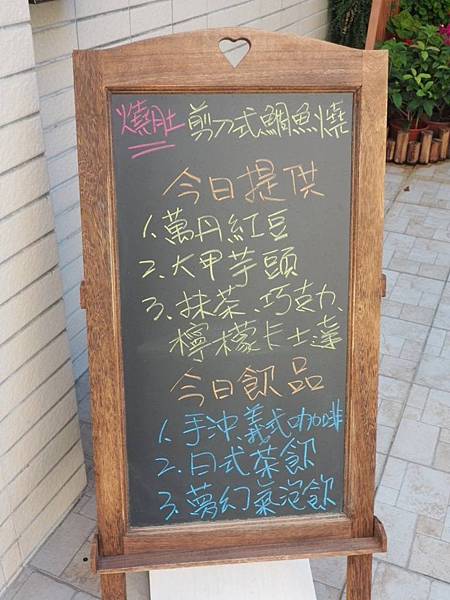 燒肚 剪刀式鯛魚燒
今日提供
1.萬丹紅豆
2.大甲芋頭
3.抹茶、巧克力、
檸檬卡士達
今日飲品
1.手沖、義式咖啡
2.日式茶飲
3.夢幻氣泡飲